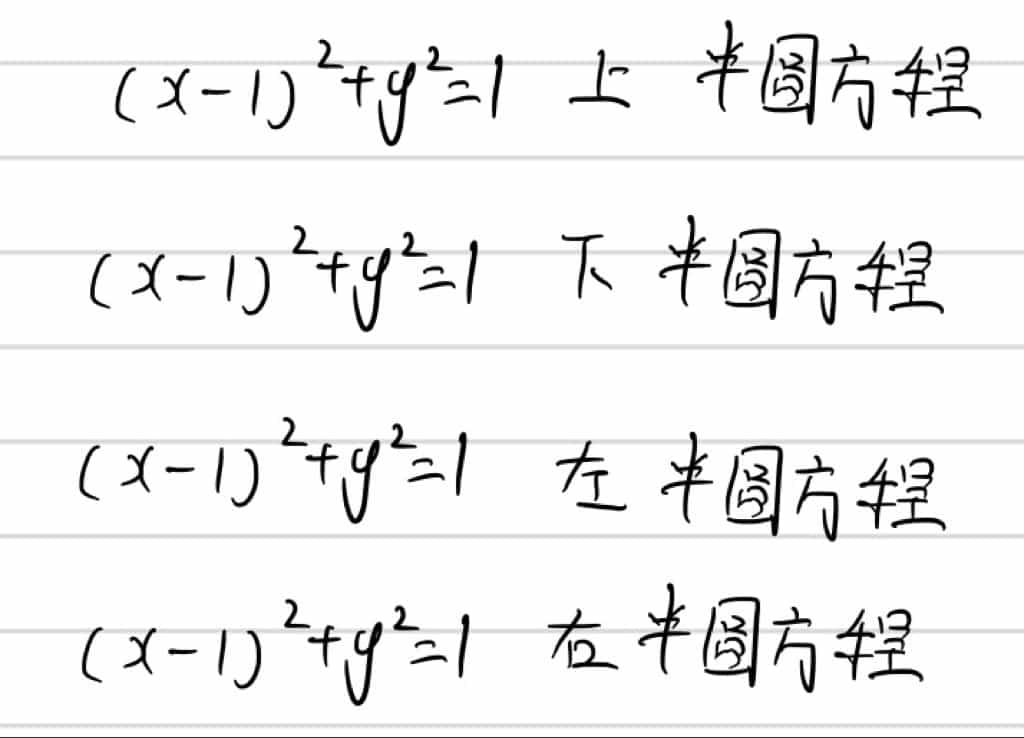 (x-1)²+y²=1 上半圆方程
(x-1)²+y²=1 下半圆方程
(x-1)²+y²=1 左半圆方程
(x-1)²+y²=1 右半圆方程